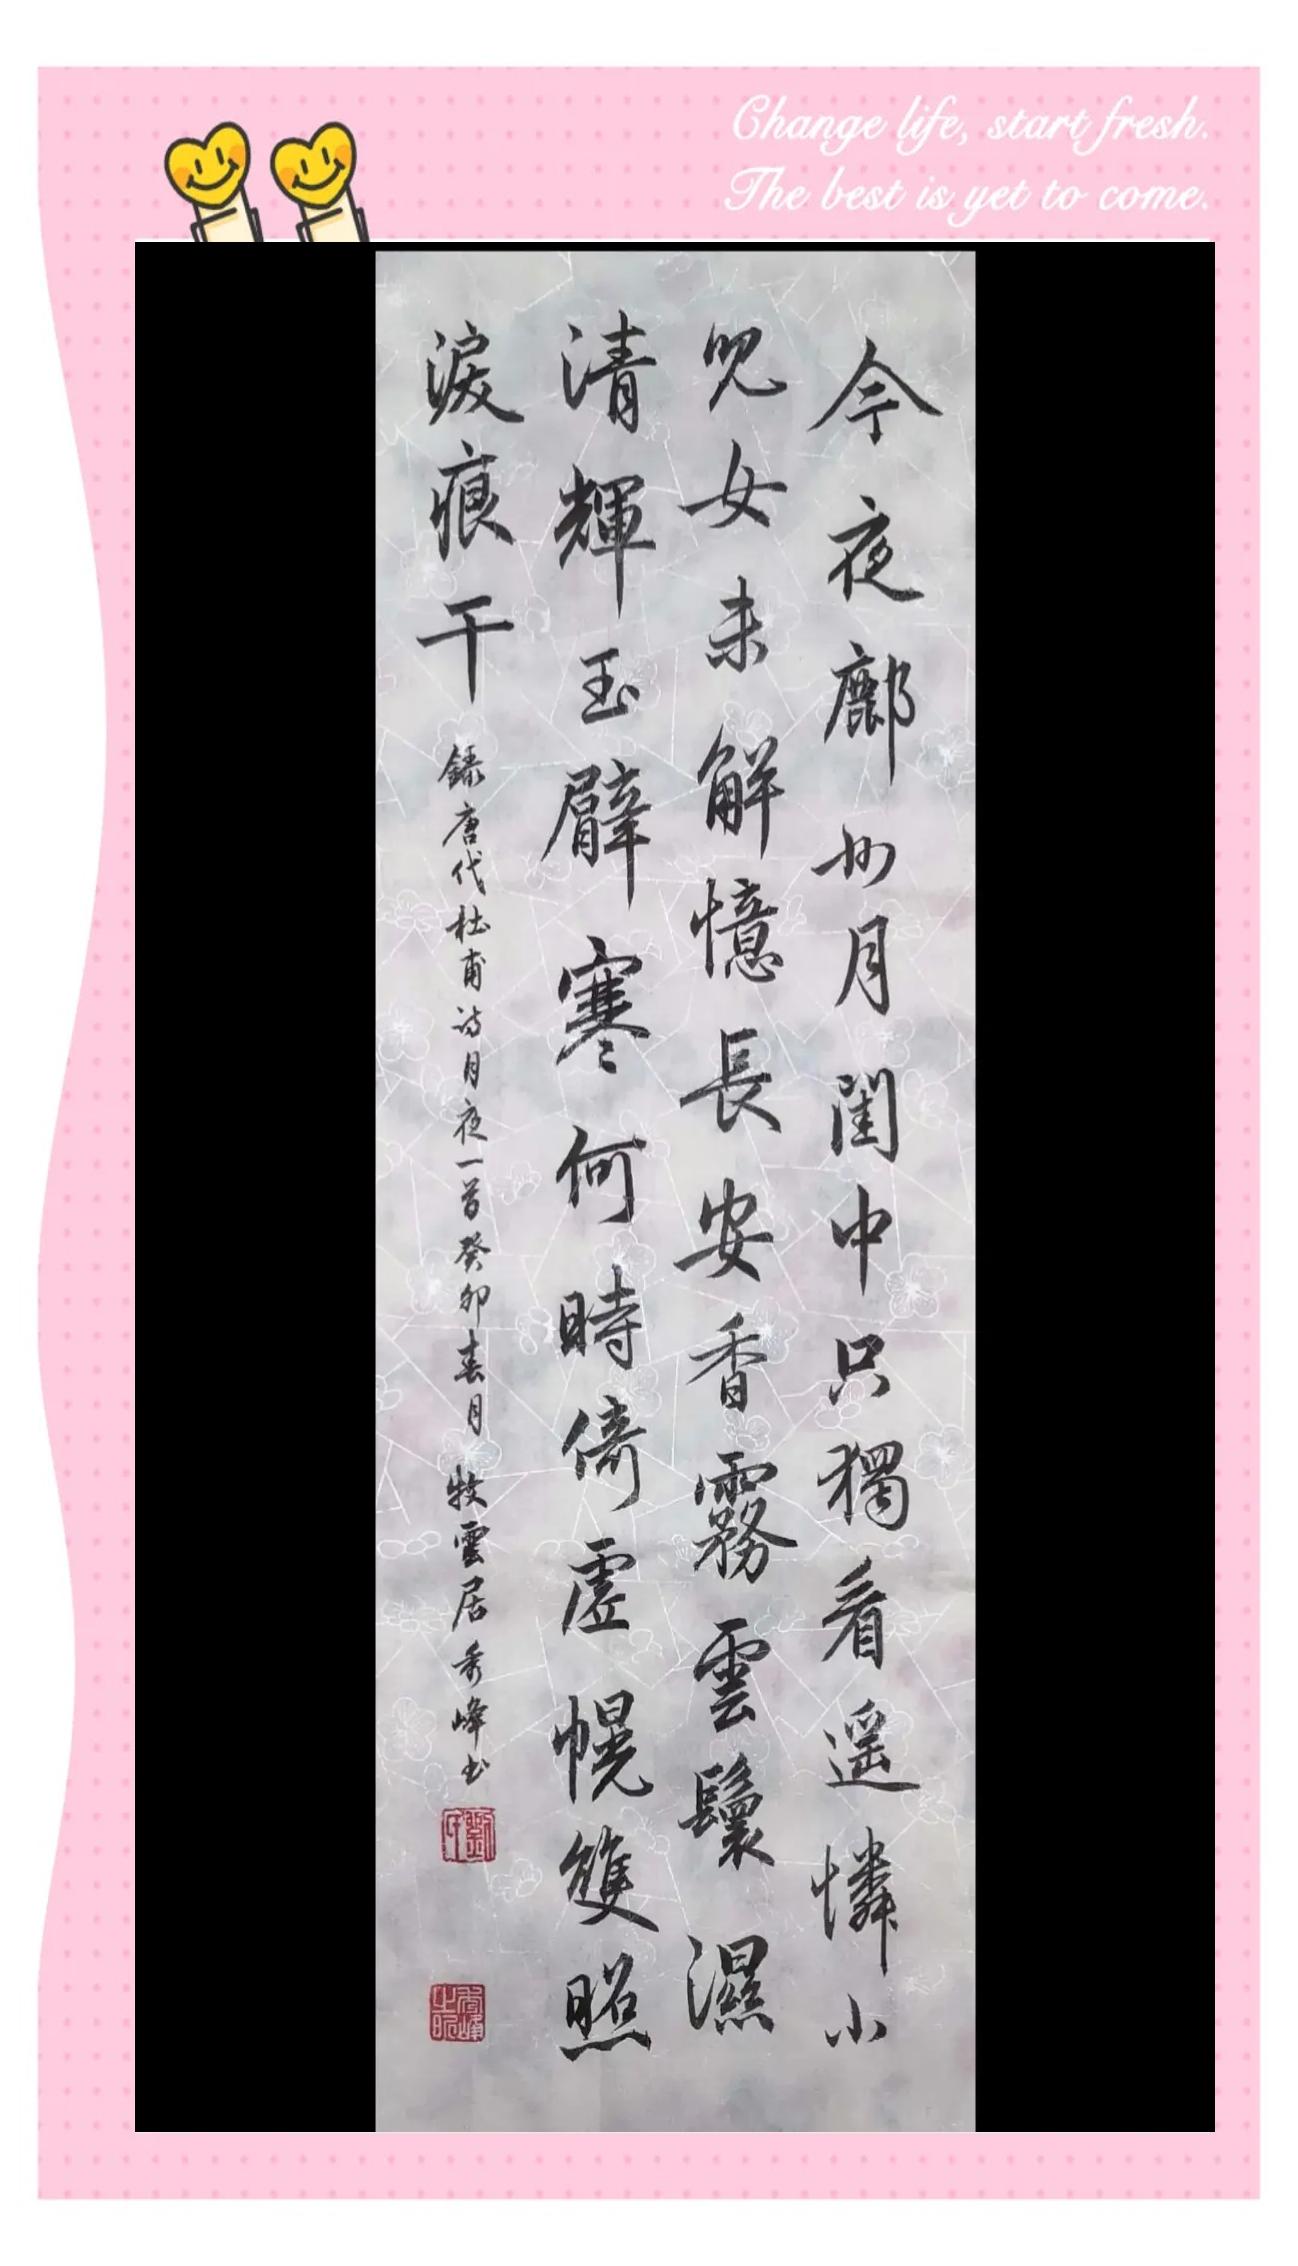 Change life, start fresh.
The best is yet to come.
今夜鄜州月閨中只獨看遥憐小
兒女未解憶長安香霧雲鬟濕
清輝玉臂寒何時倚虚幌雙照
淚痕干
録唐代杜甫诗月夜一首癸卯春月 牧雲居秀峰书
劉氏
秀峰之印